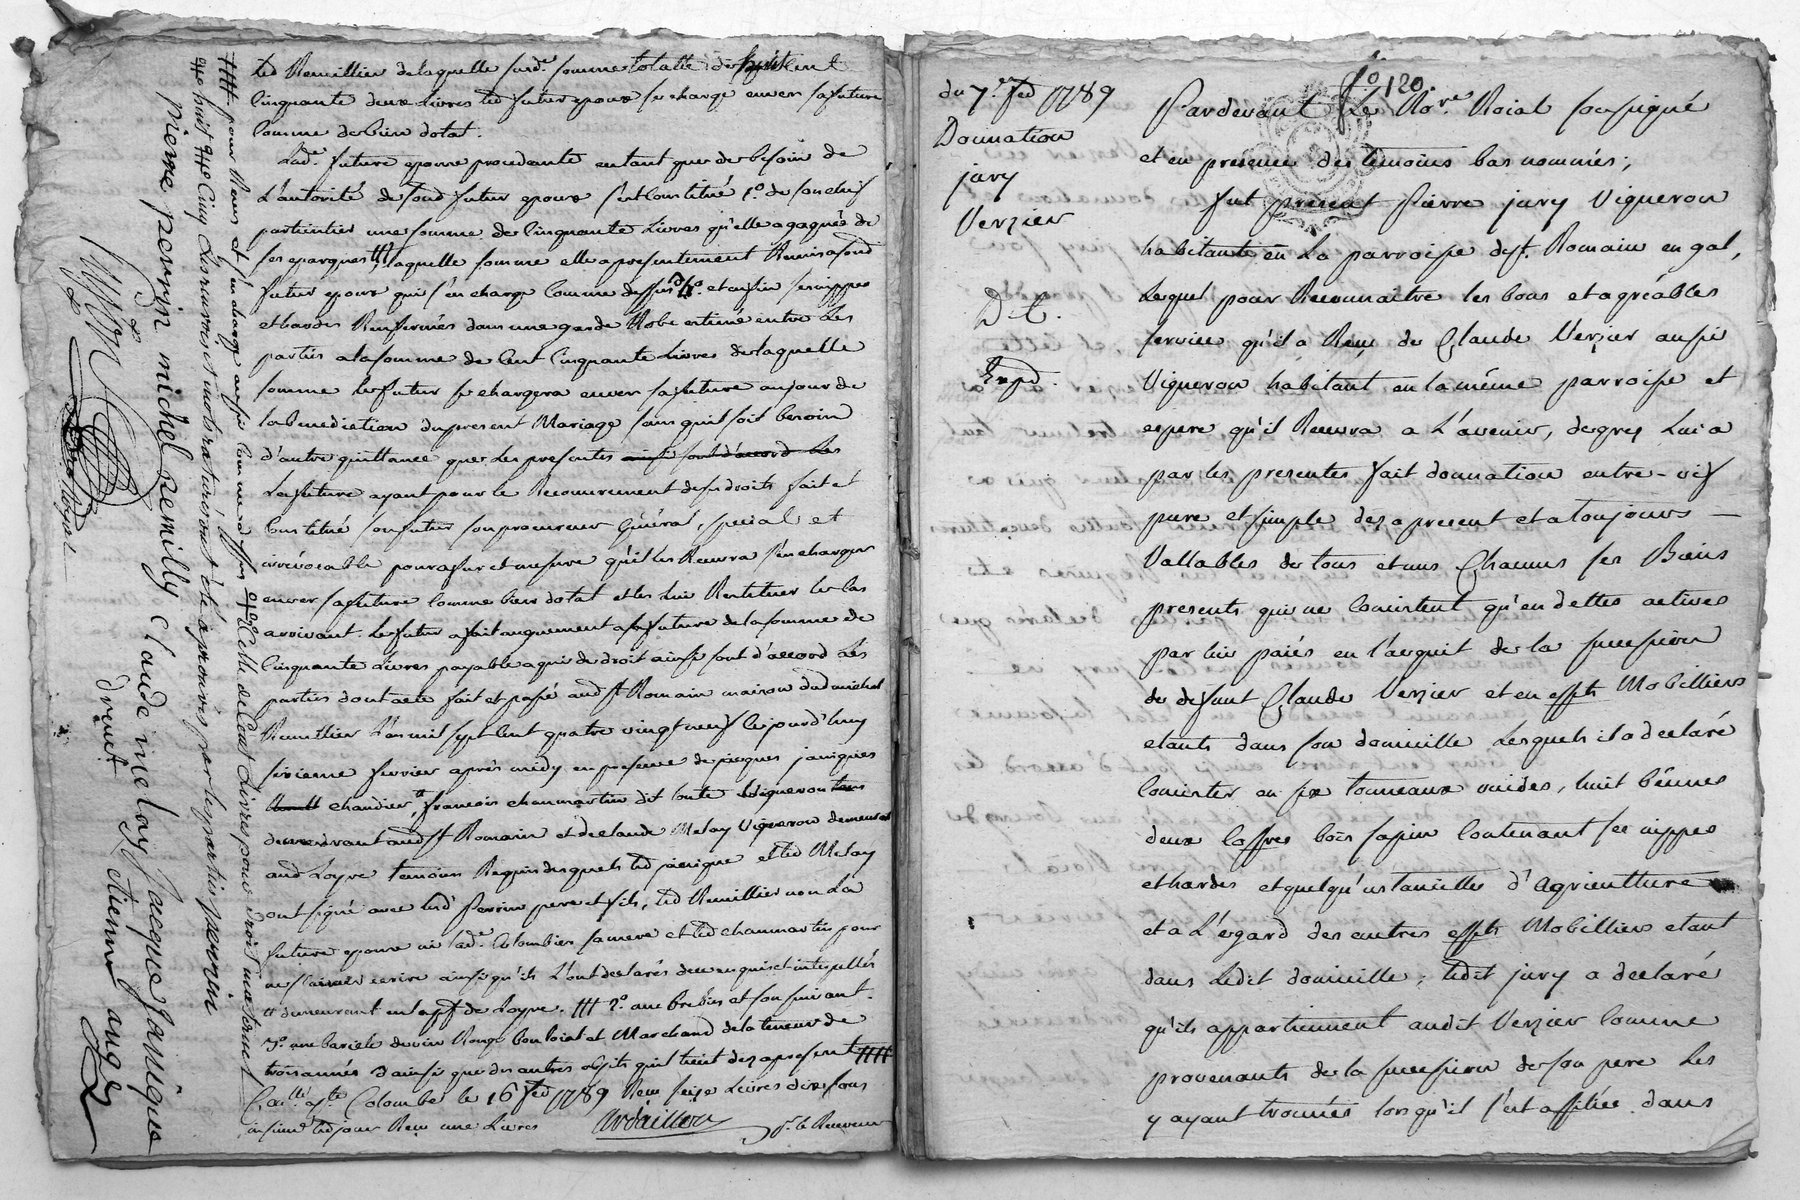 led Remillier de laquelle susde somme totalle de cent
Cinquante deux Livres led futur epoux se charge envers sa future
Comme de bien dotal.
Lade future epouse procedante en tant que de besoin de
L'autorité de sond futur epoux s'est Constitué 1o. de son chef
particulier une somme de Cinquante Livres qu'elle a gagnée de
ses epargnes laquelle somme elle a presentement Remis a sond
futur epoux qui s'en charge Comme dessus et enfin ses nippes
et hardes Renfermés dans une garde Robe estimé entre Les
partis a la somme de Cent Cinquante Livres de laquelle
somme le futur se chargera envers sa future au jour de
la benediction du present Mariage sans quil soit besoin
d'autre quittance que Les presentes ainsi sont d'accord Les
La future ayant pour le Recouvrement de ses droits fait et
Constitué son futur son procureur Général, special et
irrévocable pour a fur et mesure qu'il les Recevra s'en charger
envers sa future Comme bien dotal et les lui Restituer le cas
arrivant. Le futur a fait augment a sa future de la somme de
Cinquante Livres payable a qui de droit ainsi sont d'accord Les
parties dont acte fait et passé aud St Romain maison dud michel
Remillier L'an mil sept Cent quatre vingt neuf le jourd'huy
sixieme fevrier après midy en presence de jacques janiques
chandier, francois chanmartin dit Conte Vigneron
demeurant aud St Romain et de claude Melay Vigneron demeurant
aud Loyre temoins Requis desquels led janique et led Melay
ont signé avec lesd Perrin pere et fils, led Remillier non La
future epouse ni lade Colombier sa mere et led chanmartin pour
ne sçavoir ecrire ainsi qu'ils L'ont declarés de ce enquis et interpellés
tt demeurant en la psse de Loyre. ttt 2o. une brebis et son suivant.
3o. une bariele de vin Rouge bon loial et Marchand de la teneur de
trois annés d'ainsi que des autres objets quil tient dez apresent
Conlle à Ste Colombe le 16 fed 1789 Reçu seize Livres dix sous
insinué led jour Reçu une Livres
Ardaillon
pr. le Receveur
pour Reçus et s'en charge aussi Comme dessus Celle de Cent Livres pour droit maternel
huit Cinq et mots raturés ont été aprouvés par les parties perrin
pierre perrin michel remilly claude melay jacque janique
drevet etienne
du 7e fed 1789
Donnation
jury
Verzier
D. C.
Expd.
fo 120.
Pardevant Le Nore. Roial soussigné
et en presence des temoins bas nommés,
fut present Pierre jury Vigneron
habitant en La parroisse de St. Romain en gal,
Lequel pour Reconnaitre les bons et agréables
service qu'il a Reçu de Claude Verzier aussi
Vigneron habitant en la même parroisse et
espere qu'il Recevra a L'avenir, de gres Lui a
par les presentes fait donnation entre-vif
pure et simple dez apresent et a toujours
Vallables de tous et uns Chacuns ses Biens
presents qui ne Consistent qu'en dettes actives
par lui paiés en l'acquit de la succession
de défunt Claude Verzier et en effets Mobilliers
etants dans son domicille Lesquels il a declaré
Consister en six tonneaux vuides, huit bennes
deux Coffres bois sapin Contenant ses nippes
et hardes et quelqu'ustancilles d'agriculture
et a L'egard des autres effets Mobilliers etant
dans Ledit domicille; ledit jury a declaré
qu'ils appartiennent audit Verzier Comme
provenants de la succession de son pere Les
y ayant trouvés lorsqu'il s'est affilée dans